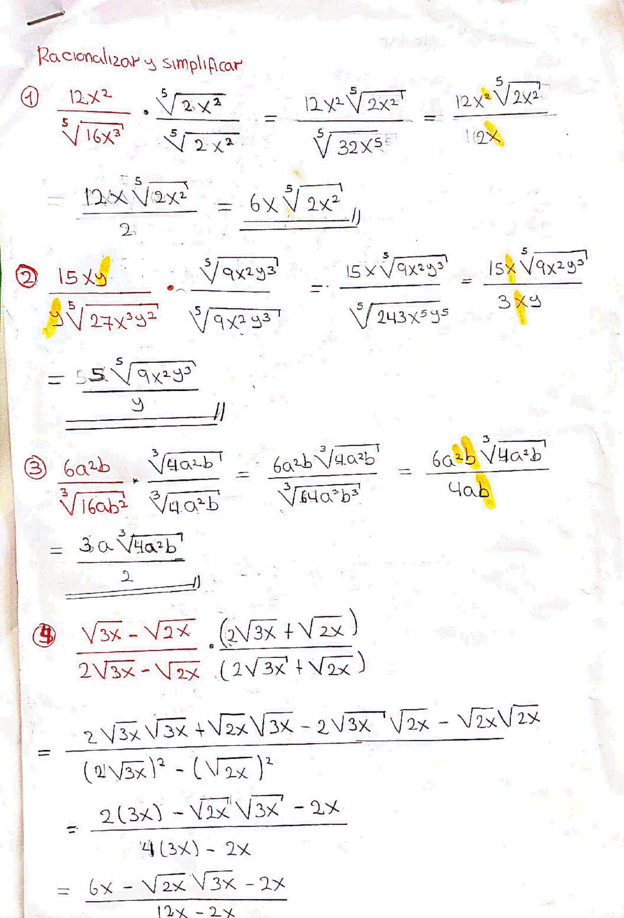 Racionalizar y simplificar
① 12x² / ⁵√16x³ · ⁵√2x² / ⁵√2x² = 12x² ⁵√2x² / ⁵√32x⁵ = 12x² ⁵√2x² / 2x
= 12x ⁵√2x² / 2 = 6x ⁵√2x² //
② 15xy / y ⁵√27x³y² · ⁵√9x²y³ / ⁵√9x²y³ = 15x ⁵√9x²y³ / ⁵√243x⁵y⁵ = 15x ⁵√9x²y³ / 3xy
= 5 ⁵√9x²y³ / y //
③ 6a²b / ³√16ab² · ³√4a²b / ³√4a²b = 6a²b ³√4a²b / ³√64a³b³ = 6a²b ³√4a²b / 4ab
= 3a ³√4a²b / 2 //
④ √3x - √2x / 2√3x - √2x · (2√3x + √2x) / (2√3x + √2x)
= 2√3x √3x + √2x √3x - 2√3x √2x - √2x √2x / (2√3x)² - (√2x)²
= 2(3x) - √2x √3x - 2x / 4(3x) - 2x
= 6x - √2x √3x - 2x / 12x - 2x